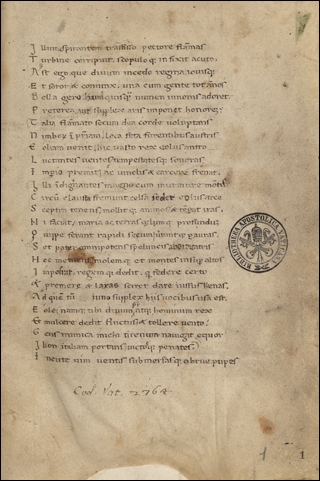 I llum expirantem trāsfixo pectore flāmas
T urbine corripuit, scopuloq; infixit acuto
A st ego que divum incedo regina iovisq;
E t soror & coniunx, una cum gente tot annos
B ella gero & quisquam numen iunonis adoret
P reterea aut supplex aris imponet honore
T alia flāmato secum dea corde volutans
N imboꝝ in p̄riam, loca feta furentibus austris
E oliam venit. hic vasto rex eolus antro
L uctantes ventos tempestatesq; sonoras
I mpio premit, ac vinclis & carcere frenat
I lli īdignantes magno cum murmure motis
C ircū claustra fremunt celsa sedet eolus arce
S ceptra tenens mollitq; animos & tēperat iras
N i faciat, maria ac terras celumq; profundū
Q uippe ferant rapidi secum verrantq; p auras
S ed pater omnipotens speluncis abdidit atris
H oc metuens molemq; et montes insup altos
I mposuit, regemq; dedit, q federe certo
& premere & laxas sciret dare iussus habenas
A d quē tū iuno supplex his vocibus usa est.
E ole, namq; tibi divum pat atq; hominum rex
& mulcere dedit fluctus & tollere vento
G ens inimica michi tirenum navigat equor
I lion italiam portans victosq; penates
I ncute vim ventis submersasq; obrue puppes
BIBLIOTHECA APOSTOLICA VATICANA
Cod. Vat. 2764
1 1